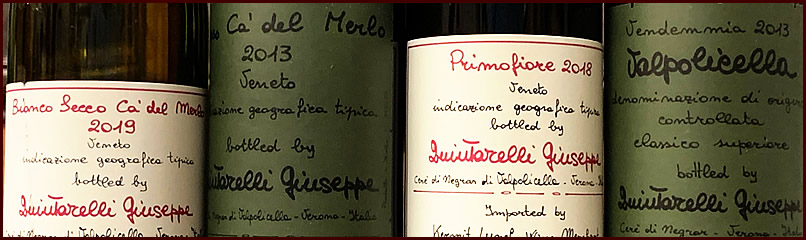 Bianco Secco Ca' del Merlo
2019
Veneto
indicazione geografica tipica
bottled by
Quintarelli Giuseppe
di Negrar di Valpolicella - Verona
Ca' del Merlo
2013
Veneto
indicazione geografica tipica
bottled by
Quintarelli Giuseppe
di Negrar di Valpolicella - Verona - Italia
Primofiore 2018
Veneto
indicazione geografica tipica
bottled by
Quintarelli Giuseppe
Cerè di Negrar di Valpolicella - Verona
Imported by
Kermit Lynch Wine Merchant
Vendemmia 2013
Valpolicella
denominazione di origine
controllata
classico superiore
bottled by
Quintarelli Giuseppe
Cerè di Negrar - Verona - Italia